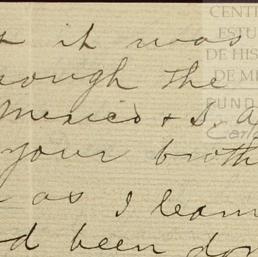 it was
the
Mexico & S. A
your broth
as I learn
d been don
CENT
ESTU
DE HIS
DE M
FUND
Carl